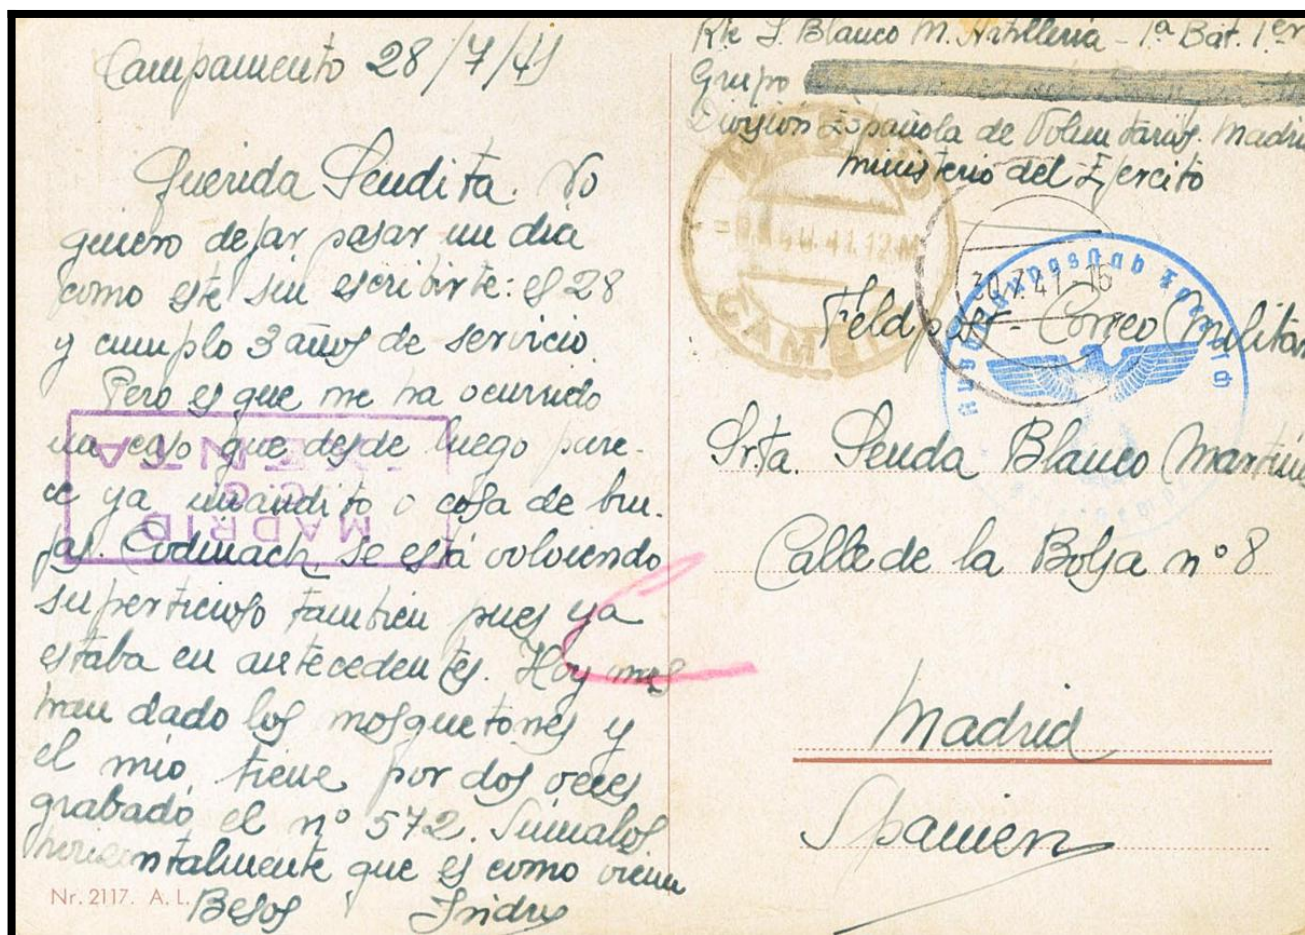 Campamento 28/7/41
Querida Sendita. No
quiero dejar pasar un dia
como este sin escribirte: es 28
y cumplo 3 años de servicio.
Pero es que me ha ocurrido
un caso que desde luego pare-
ce ya inaudito o cosa de bru-
jas. Codinach se está volviendo
supersticioso tambien pues ya
estaba en antecedentes. Hoy nos
han dado los mosquetones y
el mio, tiene por dos veces
grabado el nº 572. Sumalos
horizontalmente que es como viene
Besos Isidro
Nr. 2117. A. L.
MADRID
C.G.
Rte I. Blanco M. Artilleria - 1ª Bat. 1er
Grupo
Division Española de Voluntarios. Madrid
Ministerio del Ejercito
30.7.41-16
Feldpost - Correo Militar
Srta. Senda Blanco Martine
Calle de la Bolsa nº 8
Madrid
Spanien